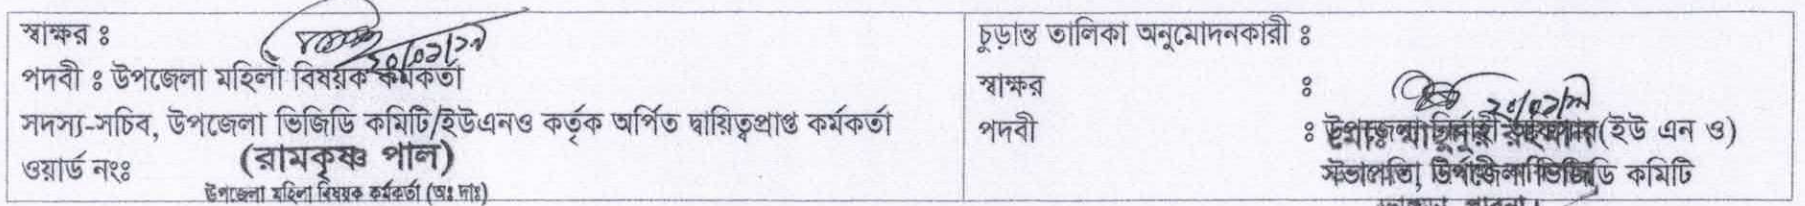 স্বাক্ষর ঃ
পদবী ঃ উপজেলা মহিলা বিষয়ক কর্মকর্তা
সদস্য-সচিব, উপজেলা ভিজিডি কমিটি/ইউএনও কর্তৃক অর্পিত দ্বায়িত্বপ্রাপ্ত কর্মকর্তা
ওয়ার্ড নংঃ
(রামকৃষ্ণ পাল)
উপজেলা মহিলা বিষয়ক কর্মকর্তা (অঃ দাঃ)
চুড়ান্ত তালিকা অনুমোদনকারী ঃ
স্বাক্ষর ঃ
পদবী ঃ উপজেলা নির্বাহী অফিসার (ইউ এন ও)
সভাপতি, উপজেলা ভিজিডি কমিটি